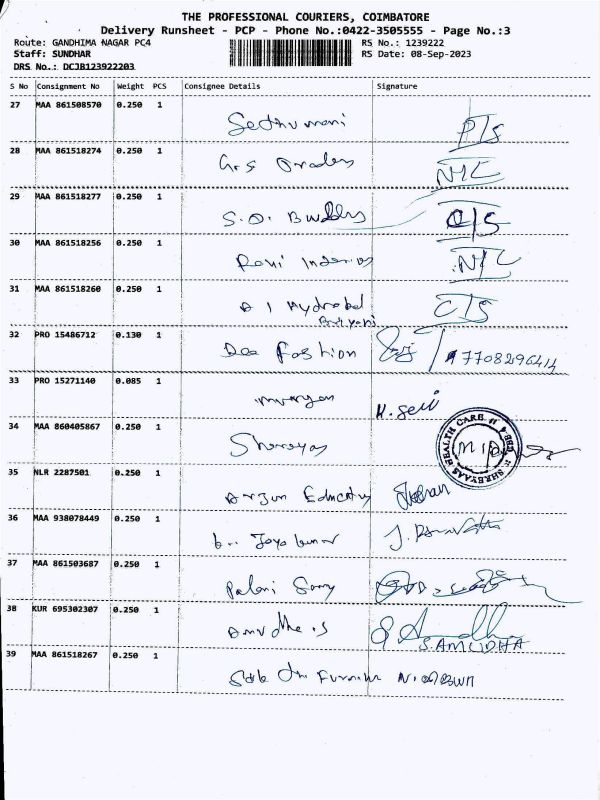 THE PROFESSIONAL COURIERS, COIMBATORE
Delivery Runsheet - PCP - Phone No.:0422-3505555 - Page No.:3
Route: GANDHIMA NAGAR PC4 RS No.: 1239222
Staff: SUNDHAR RS Date: 08-Sep-2023
DRS No.: DCJB123922203
S No Consignment No Weight PCS Consignee Details Signature
27 MAA 861508570 0.250 1 Sethumani P/S
28 MAA 861518274 0.250 1 N/C
29 MAA 861518277 0.250 1 S.O. C/S
30 MAA 861518256 0.250 1 Ravi N/C
31 MAA 861518260 0.250 1 A 1 Hydrabad C/S
Briyani
32 PRO 15486712 0.130 1 Dee Fashion 7708296414
33 PRO 15271140 0.085 1 Murugan
34 MAA 860405867 0.250 1 Shereyas SHREYAAS HEALTH CARE
35 NLR 2287501 0.250 1 Arjun
36 MAA 938078449 0.250 1
37 MAA 861503687 0.250 1 Palani Samy
38 KUR 695302307 0.250 1 Amudha.S
S.AMUDHA
39 MAA 861518267 0.250 1